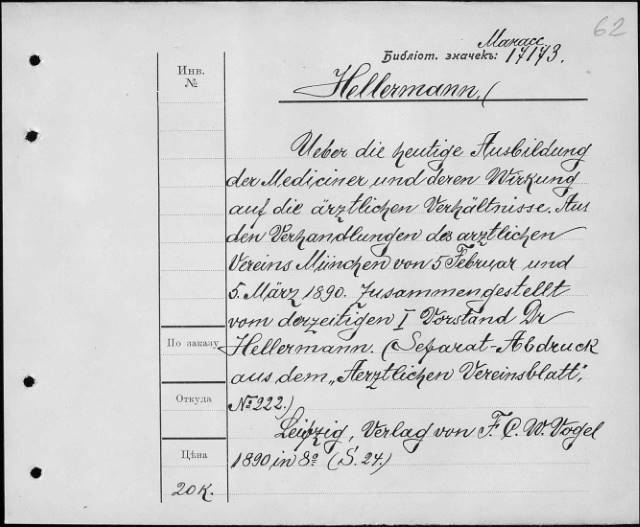 62
Манасс.
Библіот. значекъ: 17173.
Инв.
№
Hellermann, (
Ueber die heutige Ausbildung
der Mediciner und deren Wirkung
auf die ärztlichen Verhältnisse. Aus
den Verhandlungen des arztlichen
Vereins München von 5 Februar und
5. März 1890. Zusammengestellt
vom derzeitigen I Vorstand Dr
Hellermann. (Separat-Abdruck
aus dem „Aerztlichen Vereinsblatt",
№ 222.)
Leipzig, Verlag von F. C. W. Vogel
1890 in 8° (S. 24.)
По заказу
Откуда
Цѣна
20 к.